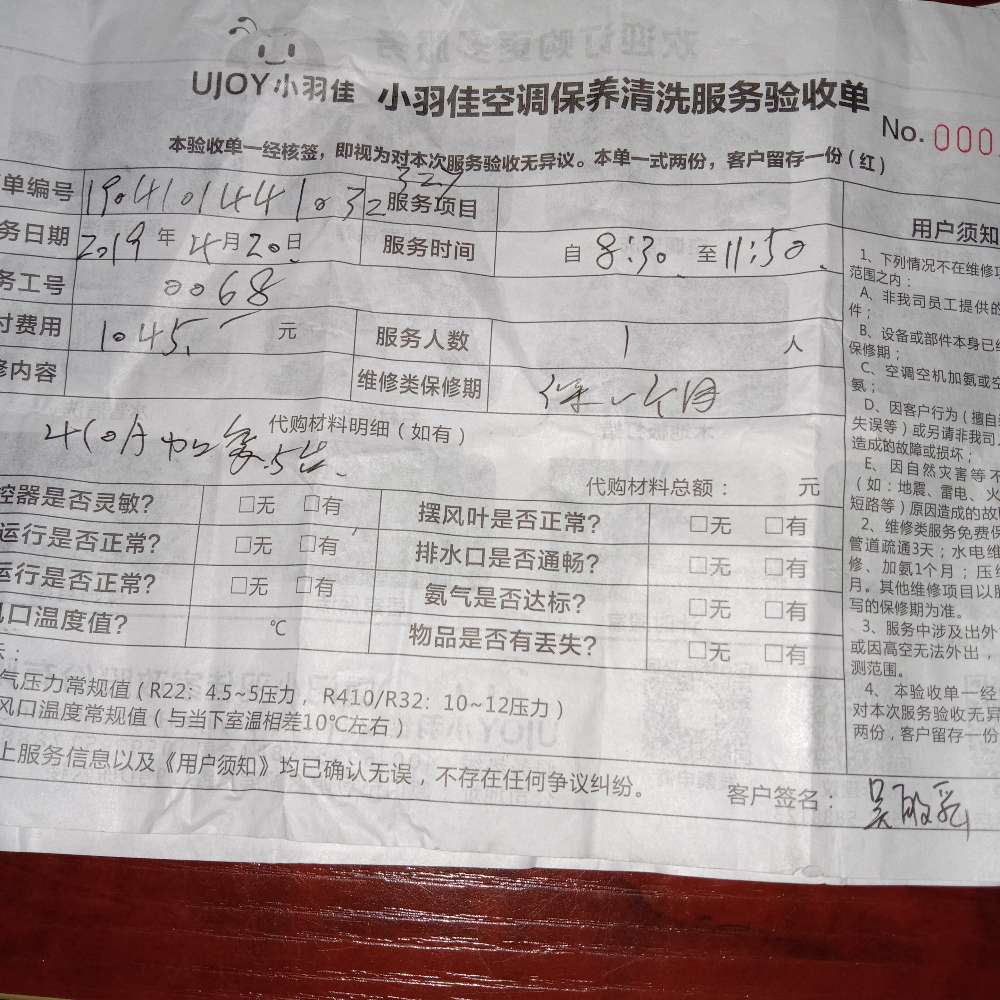 UJOY小羽佳 小羽佳空调保养清洗服务验收单
No. 000
本验收单一经核签，即视为对本次服务验收无异议。本单一式两份，客户留存一份（红）
单编号 190410144103 服务项目
327
务日期 2019年4月20日 服务时间 自8:30 至11:50
务工号 0068
付费用 1045. 元 服务人数 1 人
修内容 维修类保修期 保一个月
代购材料明细（如有）
410 加氨
代购材料总额： 元
控器是否灵敏? □无 □有 摆风叶是否正常? □无 □有
运行是否正常? □无 □有 排水口是否通畅? □无 □有
运行是否正常? □无 □有 氨气是否达标? □无 □有
风口温度值? ℃ 物品是否有丢失? □无 □有
气压力常规值（R22：4.5~5压力，R410/R32：10~12压力）
风口温度常规值（与当下室温相差10℃左右）
上服务信息以及《用户须知》均已确认无误，不存在任何争议纠纷。
客户签名：
用户须知
1、下列情况不在维修
范围之内：
A、非我司员工提供的
件；
B、设备或部件本身已
保修期；
C、空调空机加氨或空
氨；
D、因客户行为（擅自
失误等）或另请非我司
造成的故障或损坏；
E、因自然灾害等不
（如：地震、雷电、火
短路等）原因造成的故
2、维修类服务免费保
管道疏通3天；水电维
修、加氨1个月；压
月。其他维修项目以
写的保修期为准。
3、服务中涉及出外
或因高空无法外出，
测范围。
4、本验收单一经
对本次服务验收无异
两份，客户留存一份